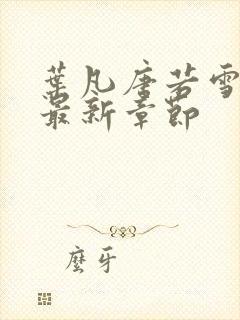 葉凡唐若雪
最新章節
麼牙